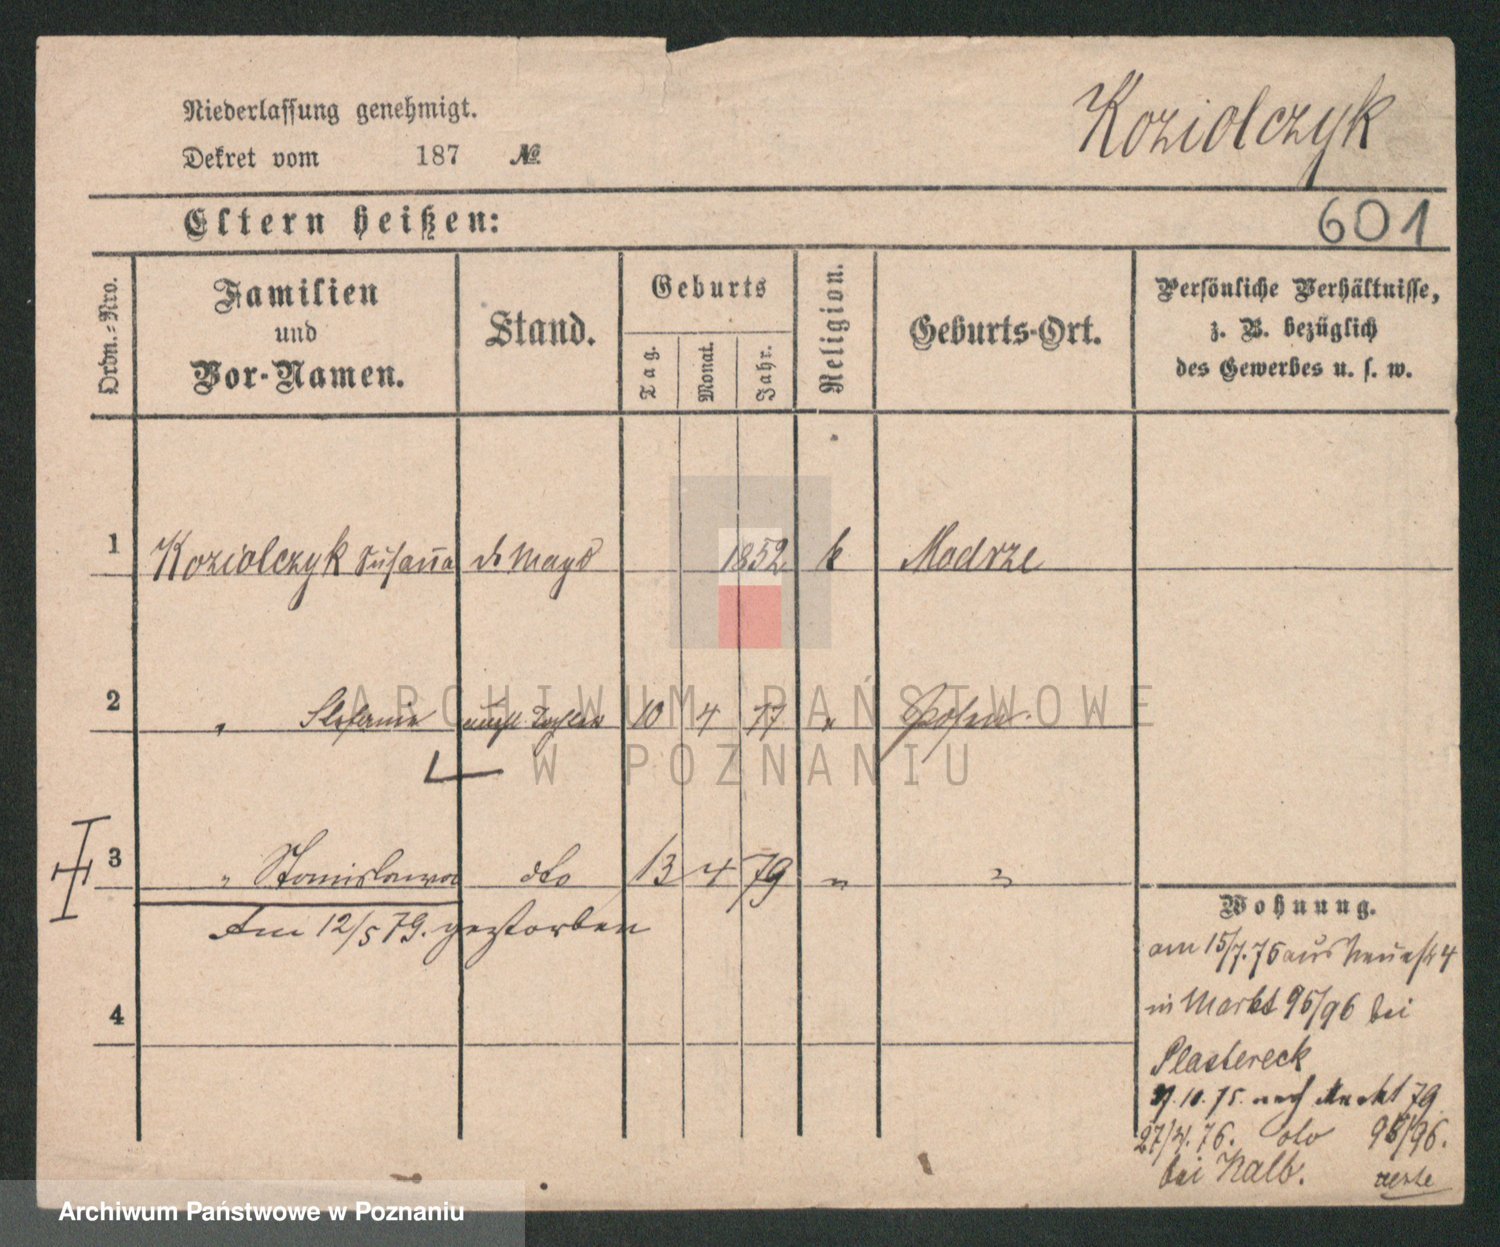 Niederlassung genehmigt.
Koziolczyk
Dekret vom 187 №
Eltern heißen:
601
Ordn.-Nro.
Familien und Vor-Namen.
Stand.
Geburts
Tag.
Monat.
Jahr.
Religion.
Geburts-Ort.
Persönliche Verhältnisse,
z. B. bezüglich
des Gewerbes u. s. w.
1 Koziolczyk Susanna d. Magd 1852 k Modrze
2 " Stefania unehl. Tochter 10 4 77 " Posen
3 " Stanislawa dto 13 4 79 " "
Am 12/5 79. gestorben
4
Wohnung.
am 15/7. 75 aus Neuestr 4
in Markt 95/96 bei
Plastereck
10. 75. nach Markt 79
27/4. 76. dto 95/96.
bei Kalb.
ARCHIWUM PAŃSTWOWE
W POZNANIU
Archiwum Państwowe w Poznaniu